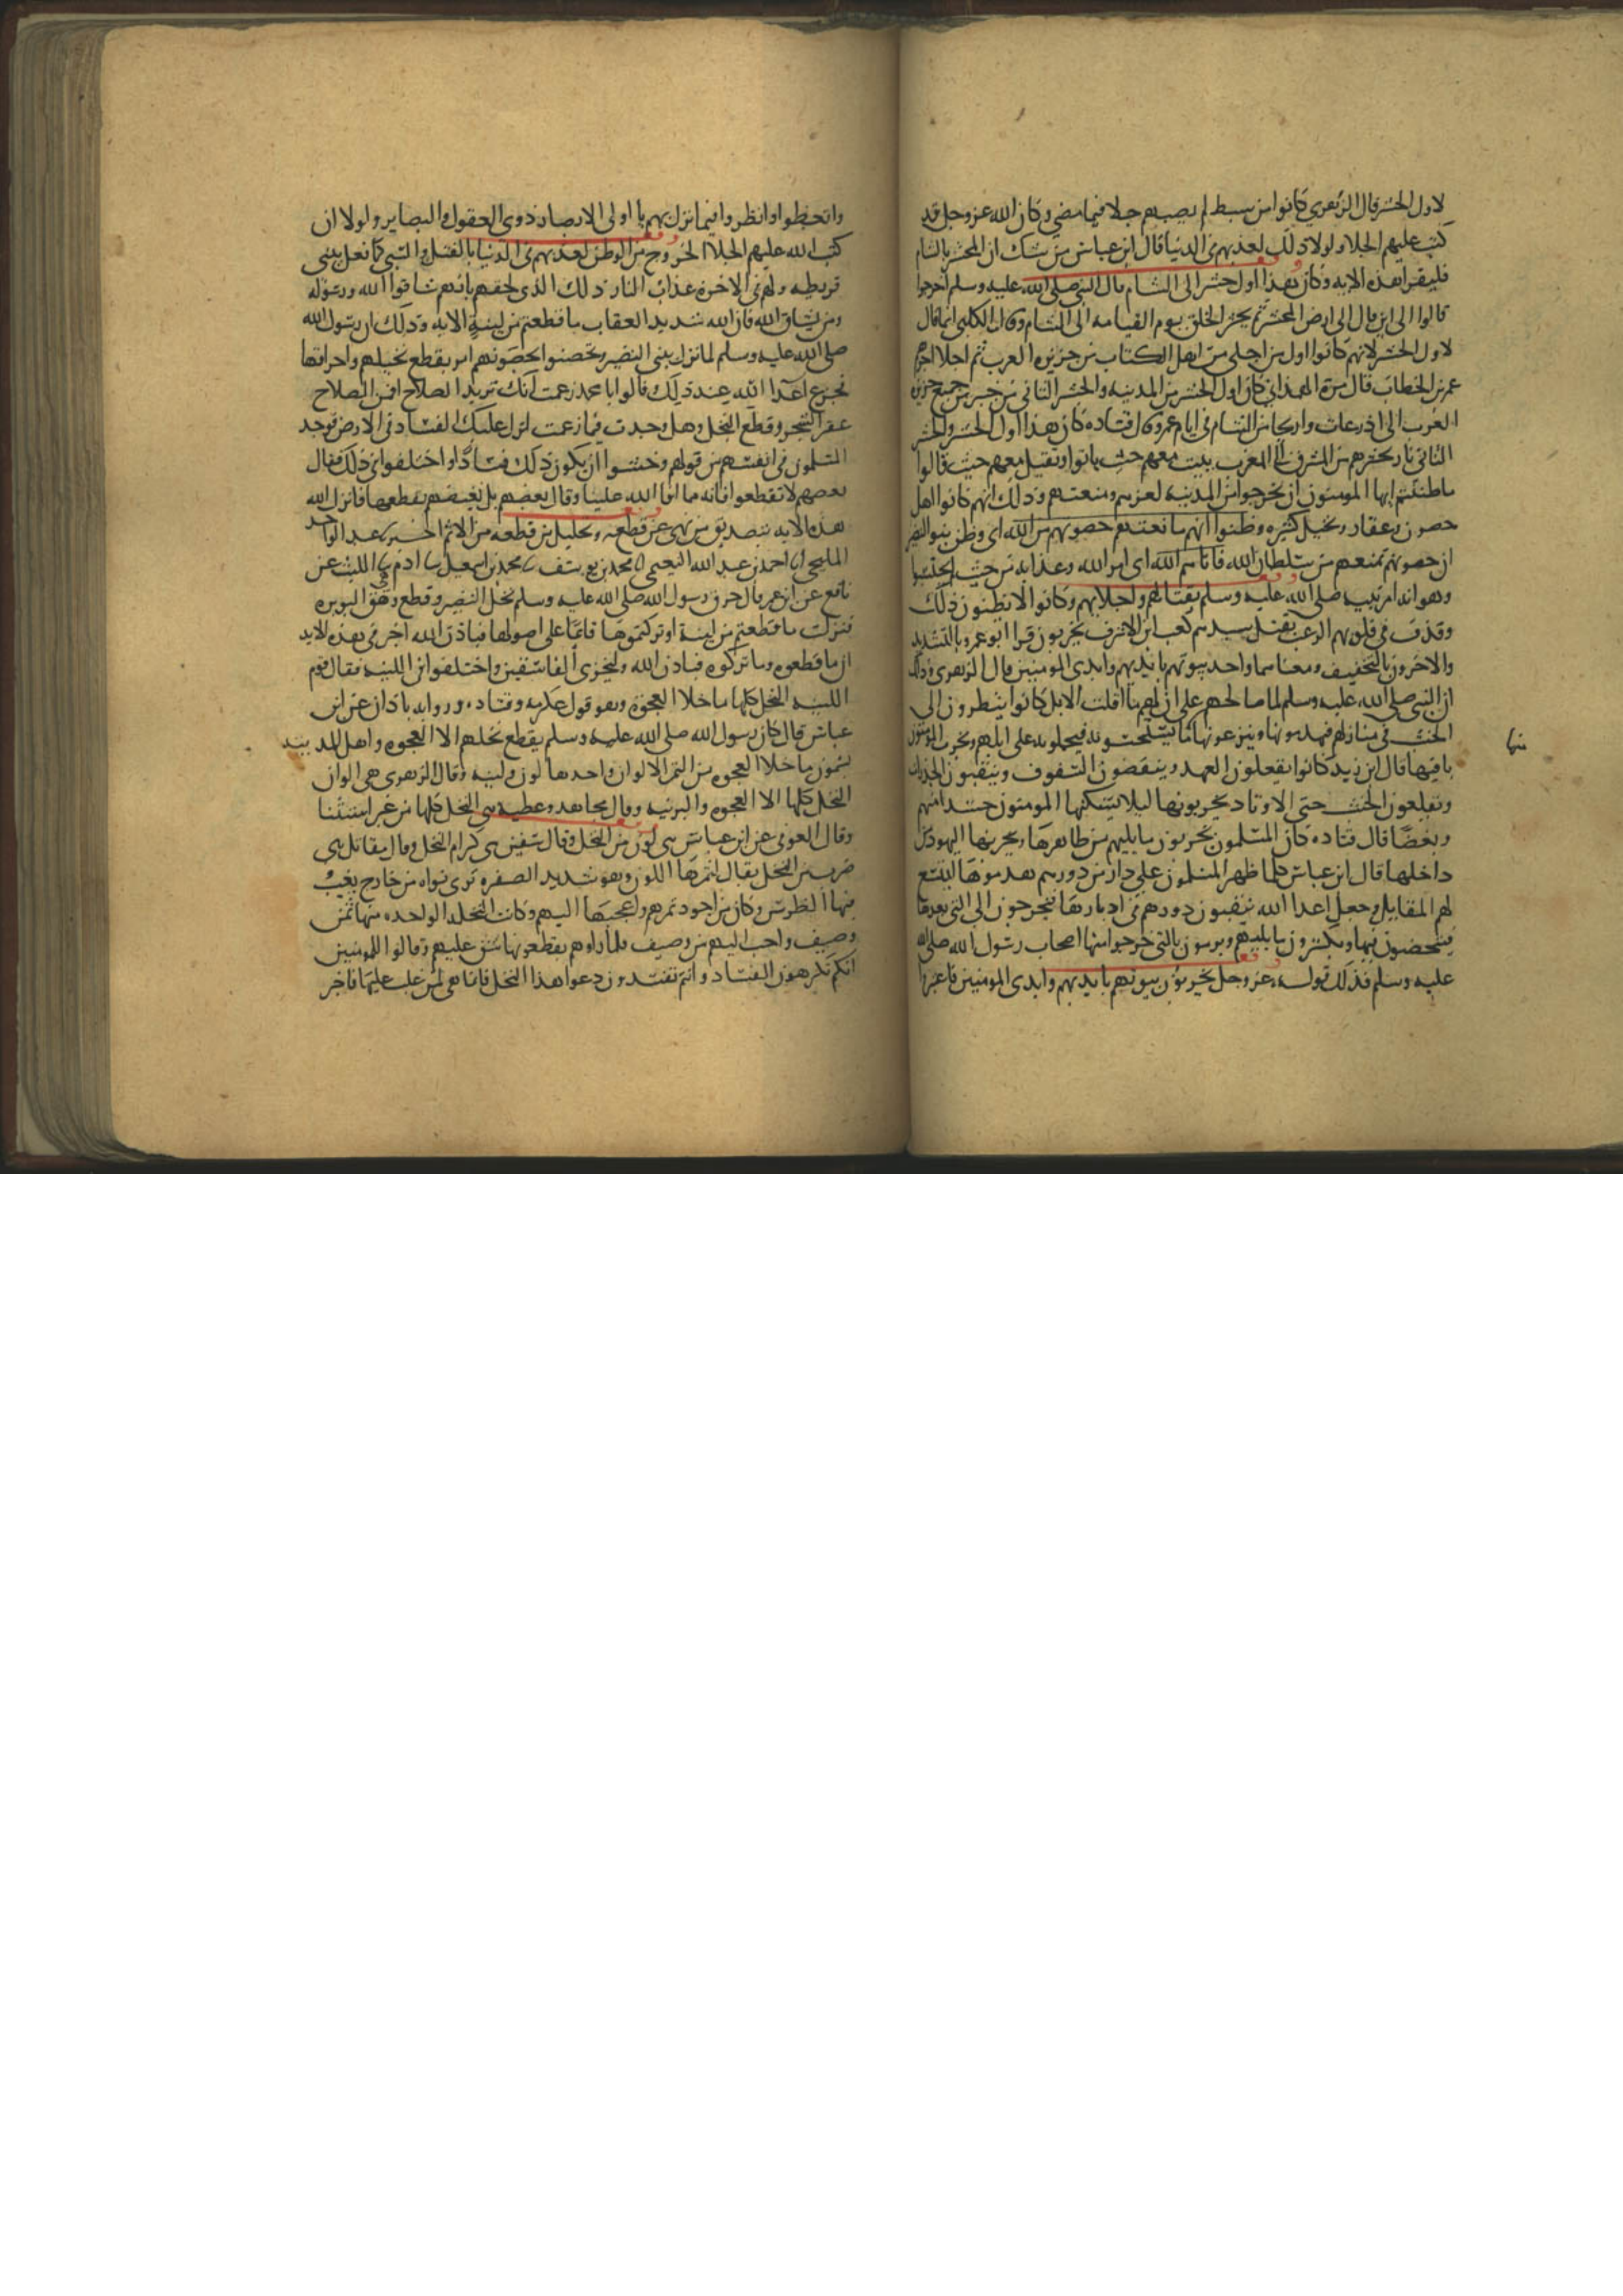 لاول الحشر قال الزهري كانوا من سبط لم يصبهم جلا فيما مضي وكان الله عز وجل قد
كتب عليهم الجلا ولولا ذلك لعذبهم في الدنيا قال ابن عباس من شك ان المحشر بالشام
فليقرا هذه الايه وكان هذا اول حشر الى الشام قال النبي صلى الله عليه وسلم اخرجوا
قالوا الى اين قال الى ارض المحشر ثم يحشر الخلق يوم القيامه الى الشام وقال الكلبي انما قال
لاول الحشر لانهم كانوا اول من اجلي من اهل الكتاب من جزيره العرب ثم اجلا اخرهم
عمر بن الخطاب قال مرة الهمذاني كان اول الحشر من المدينه والحشر الثاني من خيبر من جميع جزيره
العرب الى اذرعات واريحا من الشام في ايام عمر وقال قتاده كان هذا اول الحشر والحشر
الثاني نار تحشرهم من المشرق الى المغرب تبيت معهم حيث باتوا وتقيل معهم حيث قالوا
ما ظننتم ايها المومنون ان يخرجوا من المدينه لعزهم ومنعتهم وذلك انهم كانوا اهل
حصون وعقار ونخيل كثيره وظنوا انهم مانعتهم حصونهم من الله اي وظن بنو النضير
ان حصونهم تمنعهم من سلطان الله فاتاهم الله اي امر الله وعذابه من حيث لم يحتسبوا
وهو انه امر نبيه صلى الله عليه وسلم بقتالهم واجلايهم وكانوا لا يظنون ذلك
وقذف في قلوبهم الرعب بقتل سيدهم كعب ابن الاشرف يخربون قرا ابو عمرو بالتشديد
والاخرون بالتخفيف ومعناهما واحد بيوتهم بايديهم وايدي المومنين قال الزهري وذلك
ان النبي صلى الله عليه وسلم لما صالحهم على ان لهم ما اقلت الابل كانوا ينظرون الى
الخشب في منازلهم فيهدمونها وينزعون منها ما يستحسنونه فيحملونه على ابلهم ويخرب المومنون
منها
باقيها قال ابن زيد كانوا يقعلون العمد وينقضون السقوف وينقبون الجدران
ويقلعون الخشب حتى الاوتاد يخربونها ليلا يسكنها المومنون حسدا منهم
وبغضا قال قتاده كان المسلمون يخربون ما يليهم من ظاهرها ويخربها اليهود من
داخلها قال ابن عباس كلما ظهر المسلمون على دار من دورهم هدموها لتتسع
لهم المقاتل وجعل اعدا الله ينقبون دورهم في ادبارها فيخرجون الى التي بعدها
فيتحصنون فيها ويكسرون ما يليهم ويرمون بالتي خرجوا منها اصحاب رسول الله صلى الله
عليه وسلم فذلك قوله عز وجل يخربون بيوتهم بايديهم وايدي المومنين فاعتبروا
واتعظوا وانظروا فيما نزل بهم يا اولى الابصار ذوي العقول والبصاير ولولا ان
كتب الله عليهم الجلا الخروج من الوطن لعذبهم في الدنيا بالقتل والسبي كما فعل ببني
قريظه ولهم في الاخره عذاب النار ذلك الذي لحقهم بانهم شاقوا الله ورسوله
ومن يشاق الله فان الله شديد العقاب ما قطعتم من لينة الايه وذلك ان رسول الله
صلى الله عليه وسلم لما نزل ببني النضير وتحصنوا بحصونهم امر بقطع نخيلهم واحراقها
فجزع اعدا الله عند ذلك قالوا يا محمد زعمت انك تريد الصلاح افمن الصلاح
عقر الشجر وقطع النخل وهل وجدت فيما زعمت انزل عليك الفساد في الارض فوجد
المسلمون في انفسهم من قولهم وخشوا ان يكون ذلك فسادا واختلفوا في ذلك فقال
بعضهم لا تقطعوا فانه مما افا الله علينا وقال بعضهم بل نغيضهم بقطعها فانزل الله
هذه الايه بتصديق من نهى عن قطعه وتحليل من قطعه من الاثم اخبرنا عبد الواحد
المليحي انا احمد بن عبد الله النعيمي انا محمد بن يوسف نا محمد بن اسمعيل نا ادم نا الليث عن
نافع عن ابن عمر قال حرق رسول الله صلى الله عليه وسلم نخل النضير وقطع وهي البويره
فنزلت ما قطعتم من لينة او تركتموها قائما على اصولها فباذن الله اخبر في هذه الايه
ان ما قطعوه وما تركوه فباذن الله وليخزي الفاسقين واختلفوا في اللينه فقال قوم
اللينه النخل كلها ما خلا العجوة وهو قول عكرمه وقتاده ورواية باذان عن ابن
عباس قال كان رسول الله صلى الله عليه وسلم يقطع نخلهم الا العجوه واهل المدينه
يسمون ما خلا العجوه من التمر الالوان واحدها لون ولينه وقال الزهري هي الوان
النخل كلها الا العجوه والبرنيه وقال مجاهد وعطيه هي النخل كلها من غير استثنا
وقال العوفي عن ابن عباس هي لون من النخل وقال سفين هي كرام النخل وقال مقاتل هي
ضرب من النخل يقال لتمرها اللون وهو شديد الصفره ترى نواه من خارج يغيب
فيها الضرس وكان من اجود تمرهم واعجبها اليهم وكانت النخله الواحده منها ثمن
وصيف واحب اليهم من وصيف فلما راوهم يقطعونها شق عليهم وقالوا للمومنين
انكم تكرهون الفساد وانتم تفسدون دعوا هذا النخل فانما هي لمن غلب عليها فاخبر